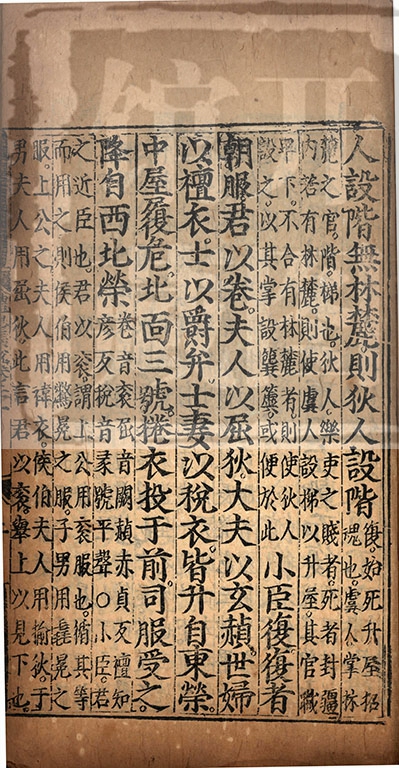 人設階無林麓則狄人設階復始死升屋招
魂也虞人掌林
麓之官階梯也狄人樂吏之賤者死者封疆
內若有林麓則使虞人設梯以升屋其官職
卑下不合有林麓者則使狄人
設之以其掌設簨簴或便於此小臣復復者
朝服君以卷夫人以屈狄大夫以玄赬世婦
以襢衣士以爵弁士妻以稅衣皆升自東榮
中屋履危北面三號捲衣投于前司服受之
降自西北榮卷音衮屈音闕赬赤貞反襢知
彥反稅音彖號平聲○小臣君
之近臣也君以衮謂上公用衮服也循其等
而用之則侯伯用鷩冕之服子男用毳冕之
服上公之夫人用褘衣侯伯夫人用揄狄子
男夫人用屈狄此言君以衮舉上以見下也